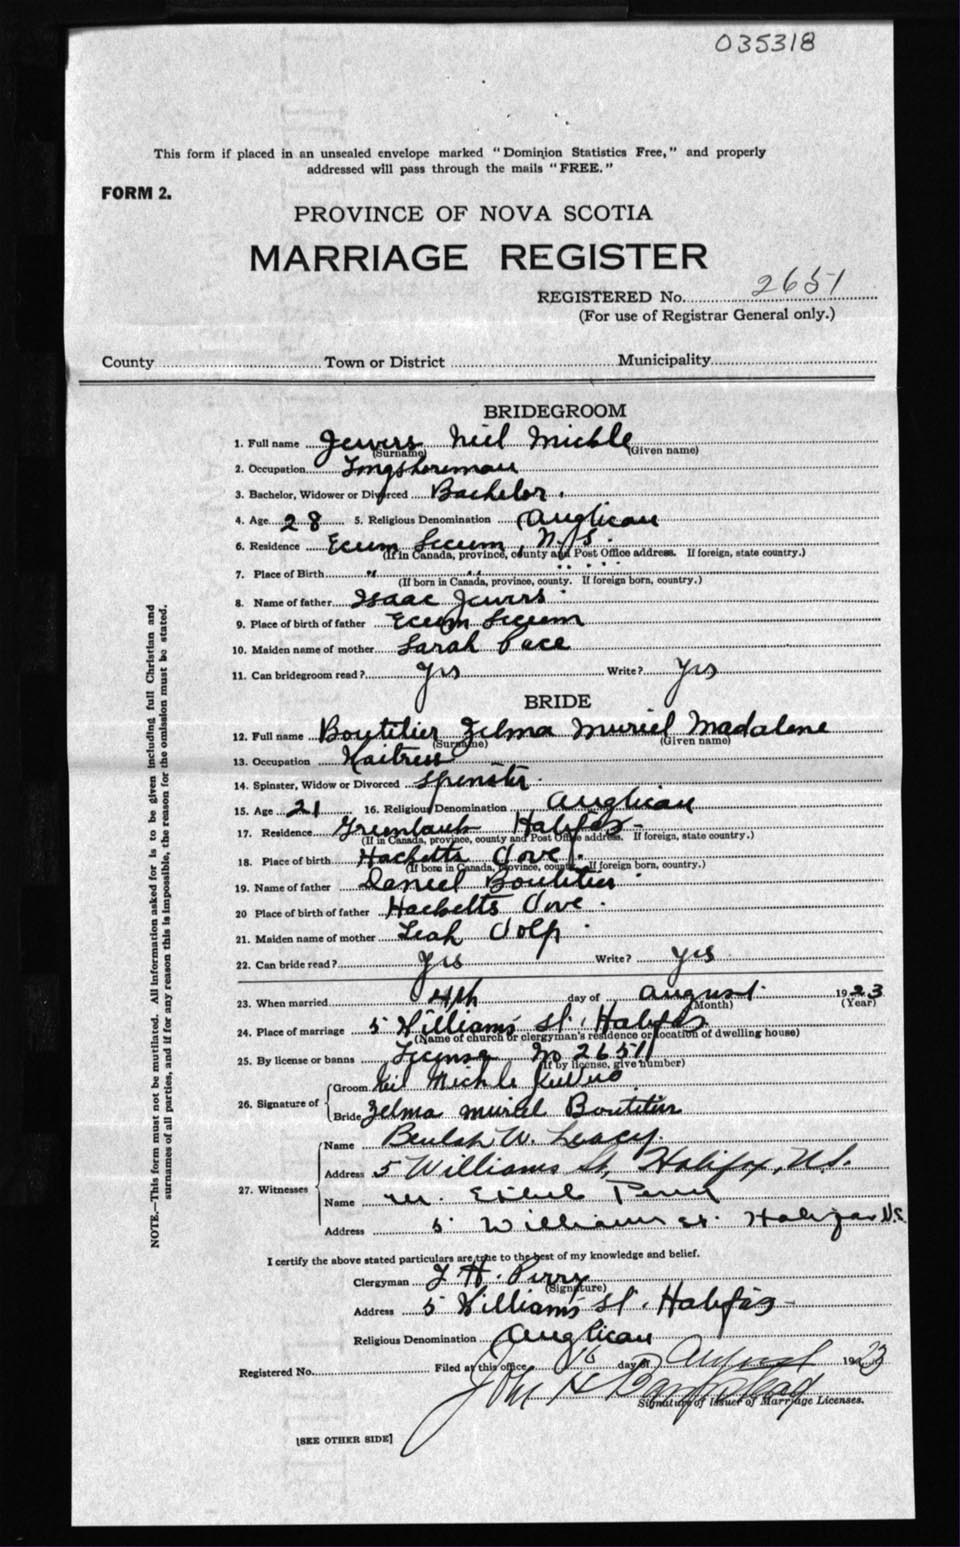 035318
This form if placed in an unsealed envelope marked "Dominion Statistics Free," and properly
addressed will pass through the mails "FREE."
FORM 2.
PROVINCE OF NOVA SCOTIA
MARRIAGE REGISTER
REGISTERED No. 2651
(For use of Registrar General only.)
County Town or District Municipality
BRIDEGROOM
1. Full name Jewers Neil Michle
(Surname) (Given name)
2. Occupation Longshoreman
3. Bachelor, Widower or Divorced Bachelor.
4. Age 28 5. Religious Denomination Anglican
6. Residence Ecum Secum, N.S.
(If in Canada, province, county and Post Office address. If foreign, state country.)
7. Place of Birth " "
(If born in Canada, province, county. If foreign born, country.)
8. Name of father Isaac Jewers
9. Place of birth of father Ecum Secum
10. Maiden name of mother Sarah Pace
11. Can bridegroom read? Yes Write? Yes
BRIDE
12. Full name Boutilier Zelma Muriel Madalene
(Surname) (Given name)
13. Occupation Waitress
14. Spinster, Widow or Divorced Spinster
15. Age 21 16. Religious Denomination Anglican
17. Residence Halifax
(If in Canada, province, county and Post Office address. If foreign, state country.)
18. Place of birth Hacketts Cove.
(If born in Canada, province, county. If foreign born, country.)
19. Name of father Daniel Boutilier
20 Place of birth of father Hacketts Cove.
21. Maiden name of mother Leah Volp
22. Can bride read? Yes Write? Yes
23. When married 4th day of August 1923
(Month) (Year)
24. Place of marriage 5 Williams St. Halifax
(Name of church or clergyman's residence or location of dwelling house)
25. By license or banns License No 2651
(If by license, give number)
26. Signature of
Groom Neil Michle
Bride Zelma Muriel Boutilier
27. Witnesses
Name Beulah W. Leacy.
Address 5 Williams St, Halifax, N.S.
Name M. Ethel Perry
Address 5 Williams St. Halifax N.S.
I certify the above stated particulars are true to the best of my knowledge and belief.
Clergyman J H. Perry
(Signature)
Address 5 Williams St. Halifax
Religious Denomination Anglican
Registered No. Filed at this office 10 day of August 1923
John H
Signature of Issuer of Marriage Licenses.
[SEE OTHER SIDE]
NOTE.—This form must not be mutilated. All information asked for is to be given including full Christian and
surnames of all parties, and if for any reason this is impossible, the reason for the omission must be stated.